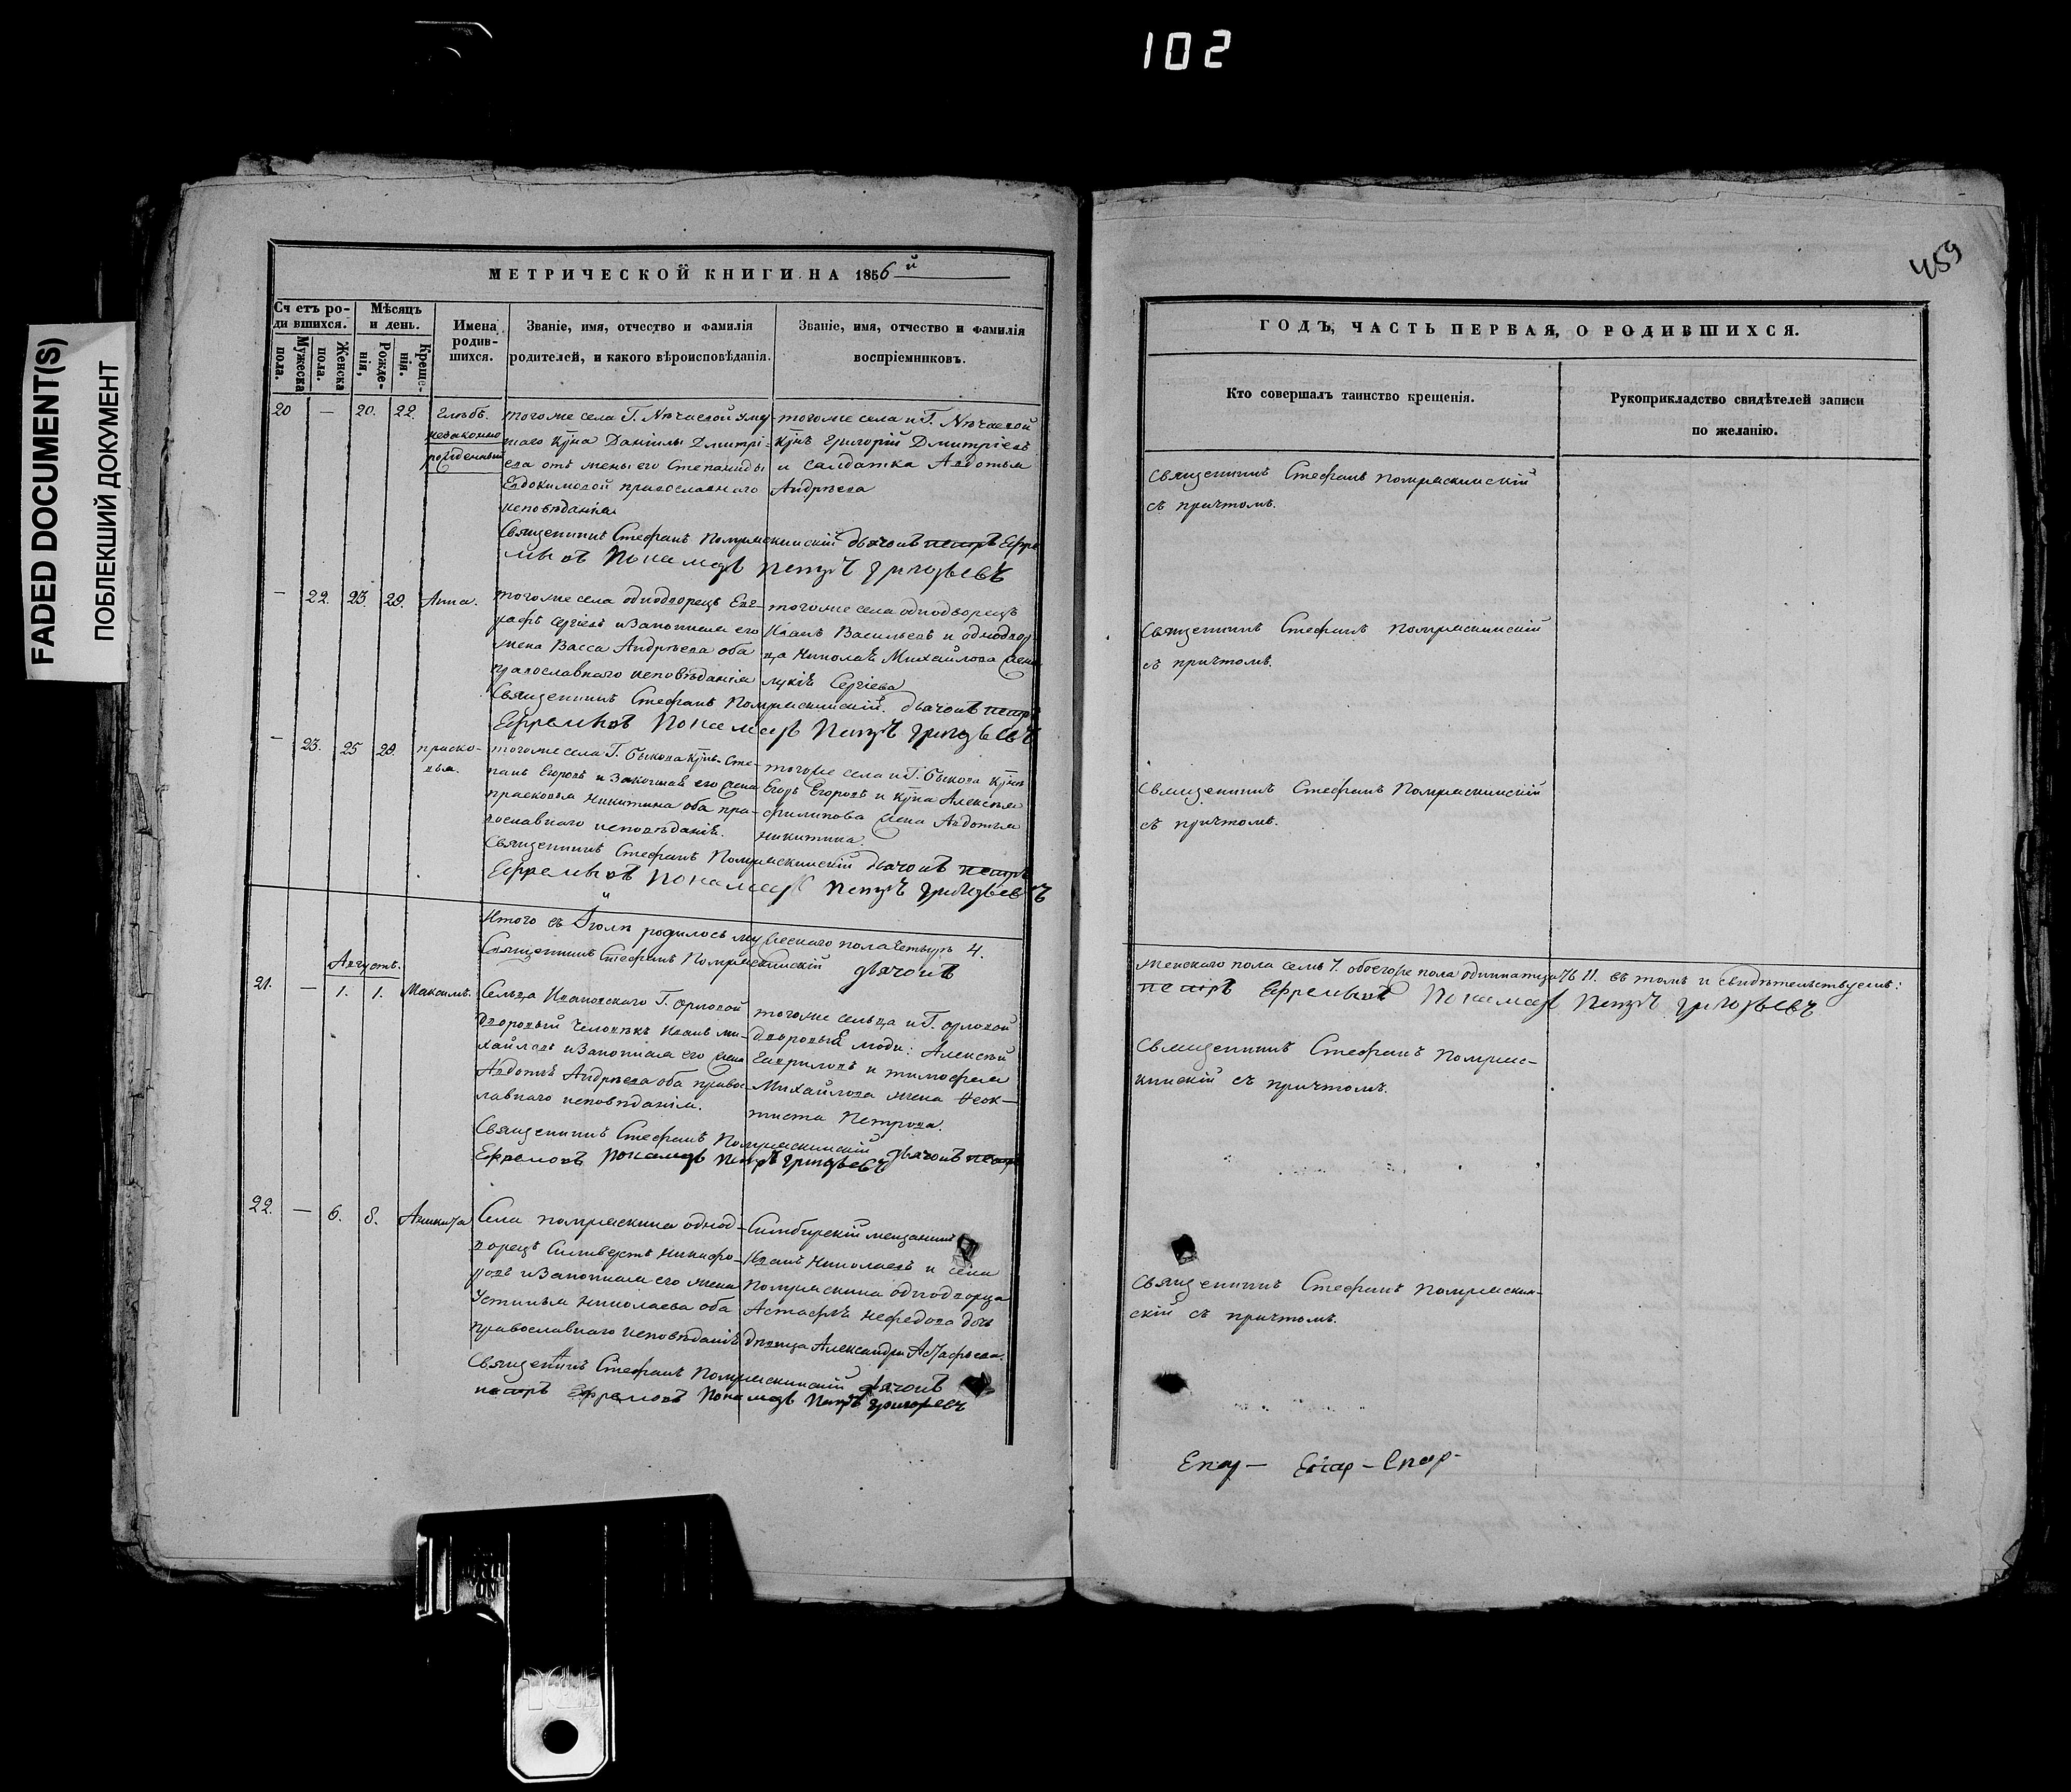 102
FADED DOCUMENT(S)
ПОБЛЕКШИЙ ДОКУМЕНТ
МЕТРИЧЕСКОЙ КНИГИ НА 1856й
Сч етъ ро-
ди вшихся.
Мужеска пола.
Женска пола.
Мѣсяцъ
и день.
Рожде-
нія,
Креще-
нія.
Имена
родив-
шихся.
Званіе, имя, отчество и фамилія
родителей, и какого вѣроисповѣданія.
Званіе, имя, отчество и фамилія
воспріемниковъ.
20 — 20. 22. Глѣбъ.
незаконно
рожденный
тогоже села Г. Нѣчаевой уме
шаго Кр҃на Даніилы Дмитрі-
ева отъ жены его Степаниды
Евдокимовой православнаго
исповѣданія
тогоже села и Г. Нѣчаевой
Кр҃нъ Григорій Дмитріевъ
и солдатка Авдотья
Андрѣева
Священникъ Стефанъ Помряскинскій дьячокъ петръ Ефре
мовъ Понамарь Петръ Григорьевъ
— 22. 23. 29. Анна.
тогоже села однодворецъ Евг-
рафъ Сергіевъ и Законная его
жена Васса Андрѣева оба
православнаго исповѣданія
тогоже села однодворецъ
Иванъ Васильевъ и однодвор-
ца Николая Михайлова жена
Лукія Сергіева
Священникъ Стефанъ Помряскинскій. дьячокъ петръ
Ефремовъ Понамарь Петръ Григорьевъ
— 23. 25 29. праско-
вья.
тогоже села Г. Быкова Кр҃нъ Сте-
панъ Егоровъ и Законная его жена
прасковья Никитина оба пра-
вославнаго исповѣданія.
тогоже села и Г. Быкова Кр҃нъ
Егоръ Егоровъ и Кр҃на Алексѣя
филипова жена Авдотья
Никитина.
Священникъ Стефанъ Помряскинскій дьячокъ петръ
Ефремовъ Понамарь Петръ Григорьевъ
Итого въ Іюлѣ родилось мужескаго пола четыре 4.
Священникъ Стефанъ Помряскинскій дьячокъ
Августъ.
21. — 1. 1. Максимъ.
Сельца Ивановскаго Г. Орловой
Дворовый человѣкъ Иванъ Ми-
хайловъ и Законная его жена
Авдотья Андрѣева оба правос-
лавнаго исповѣданія.
тогоже сельца и Г. Орловой
дворовыя люди: Алексѣй
Гавриловъ и тимофея
Михайлова жена Ѳеок-
тиста Петрова.
Священникъ Стефанъ Помряскинскій дьячокъ петръ
Ефремовъ Понамарь Петръ Григорьевъ
22. — 6. 8. Аникита
Села помряскина однод-
ворецъ Силиверстъ Никифо-
ровъ и Законная его жена
Устинья Николаева оба
православнаго исповѣданія
Симбирскій мещанинъ
Иванъ Николаевъ и села
Помряскина однодворца
Астафья Нефедова дочь
дѣвица Александра Астафьева.
Священникъ Стефанъ Помряскинскій дьячокъ
петръ Ефремовъ Понамарь Петръ Григорьевъ
459
ГОДЪ, ЧАСТЬ ПЕРВАЯ, О РОДИВШИХСЯ.
Кто совершалъ таинство крещенія.
Рукоприкладство свидѣтелей записи
по желанію.
Священникъ Стефанъ Помряскинскій
съ причтомъ.
Священникъ Стефанъ Помряскинскій
съ причтомъ.
Священникъ Стефанъ Помряскинскій
съ причтомъ.
Женскаго пола семь 7. обоего же пола одиннатцать 11. въ томъ и свидѣтельствуемъ:
петръ Ефремовъ Понамарь Петръ Григорьевъ
Священникъ Стефанъ Помряс-
кинскій съ причтомъ.
Священникъ Стефанъ Помряскин-
скій съ причтомъ.